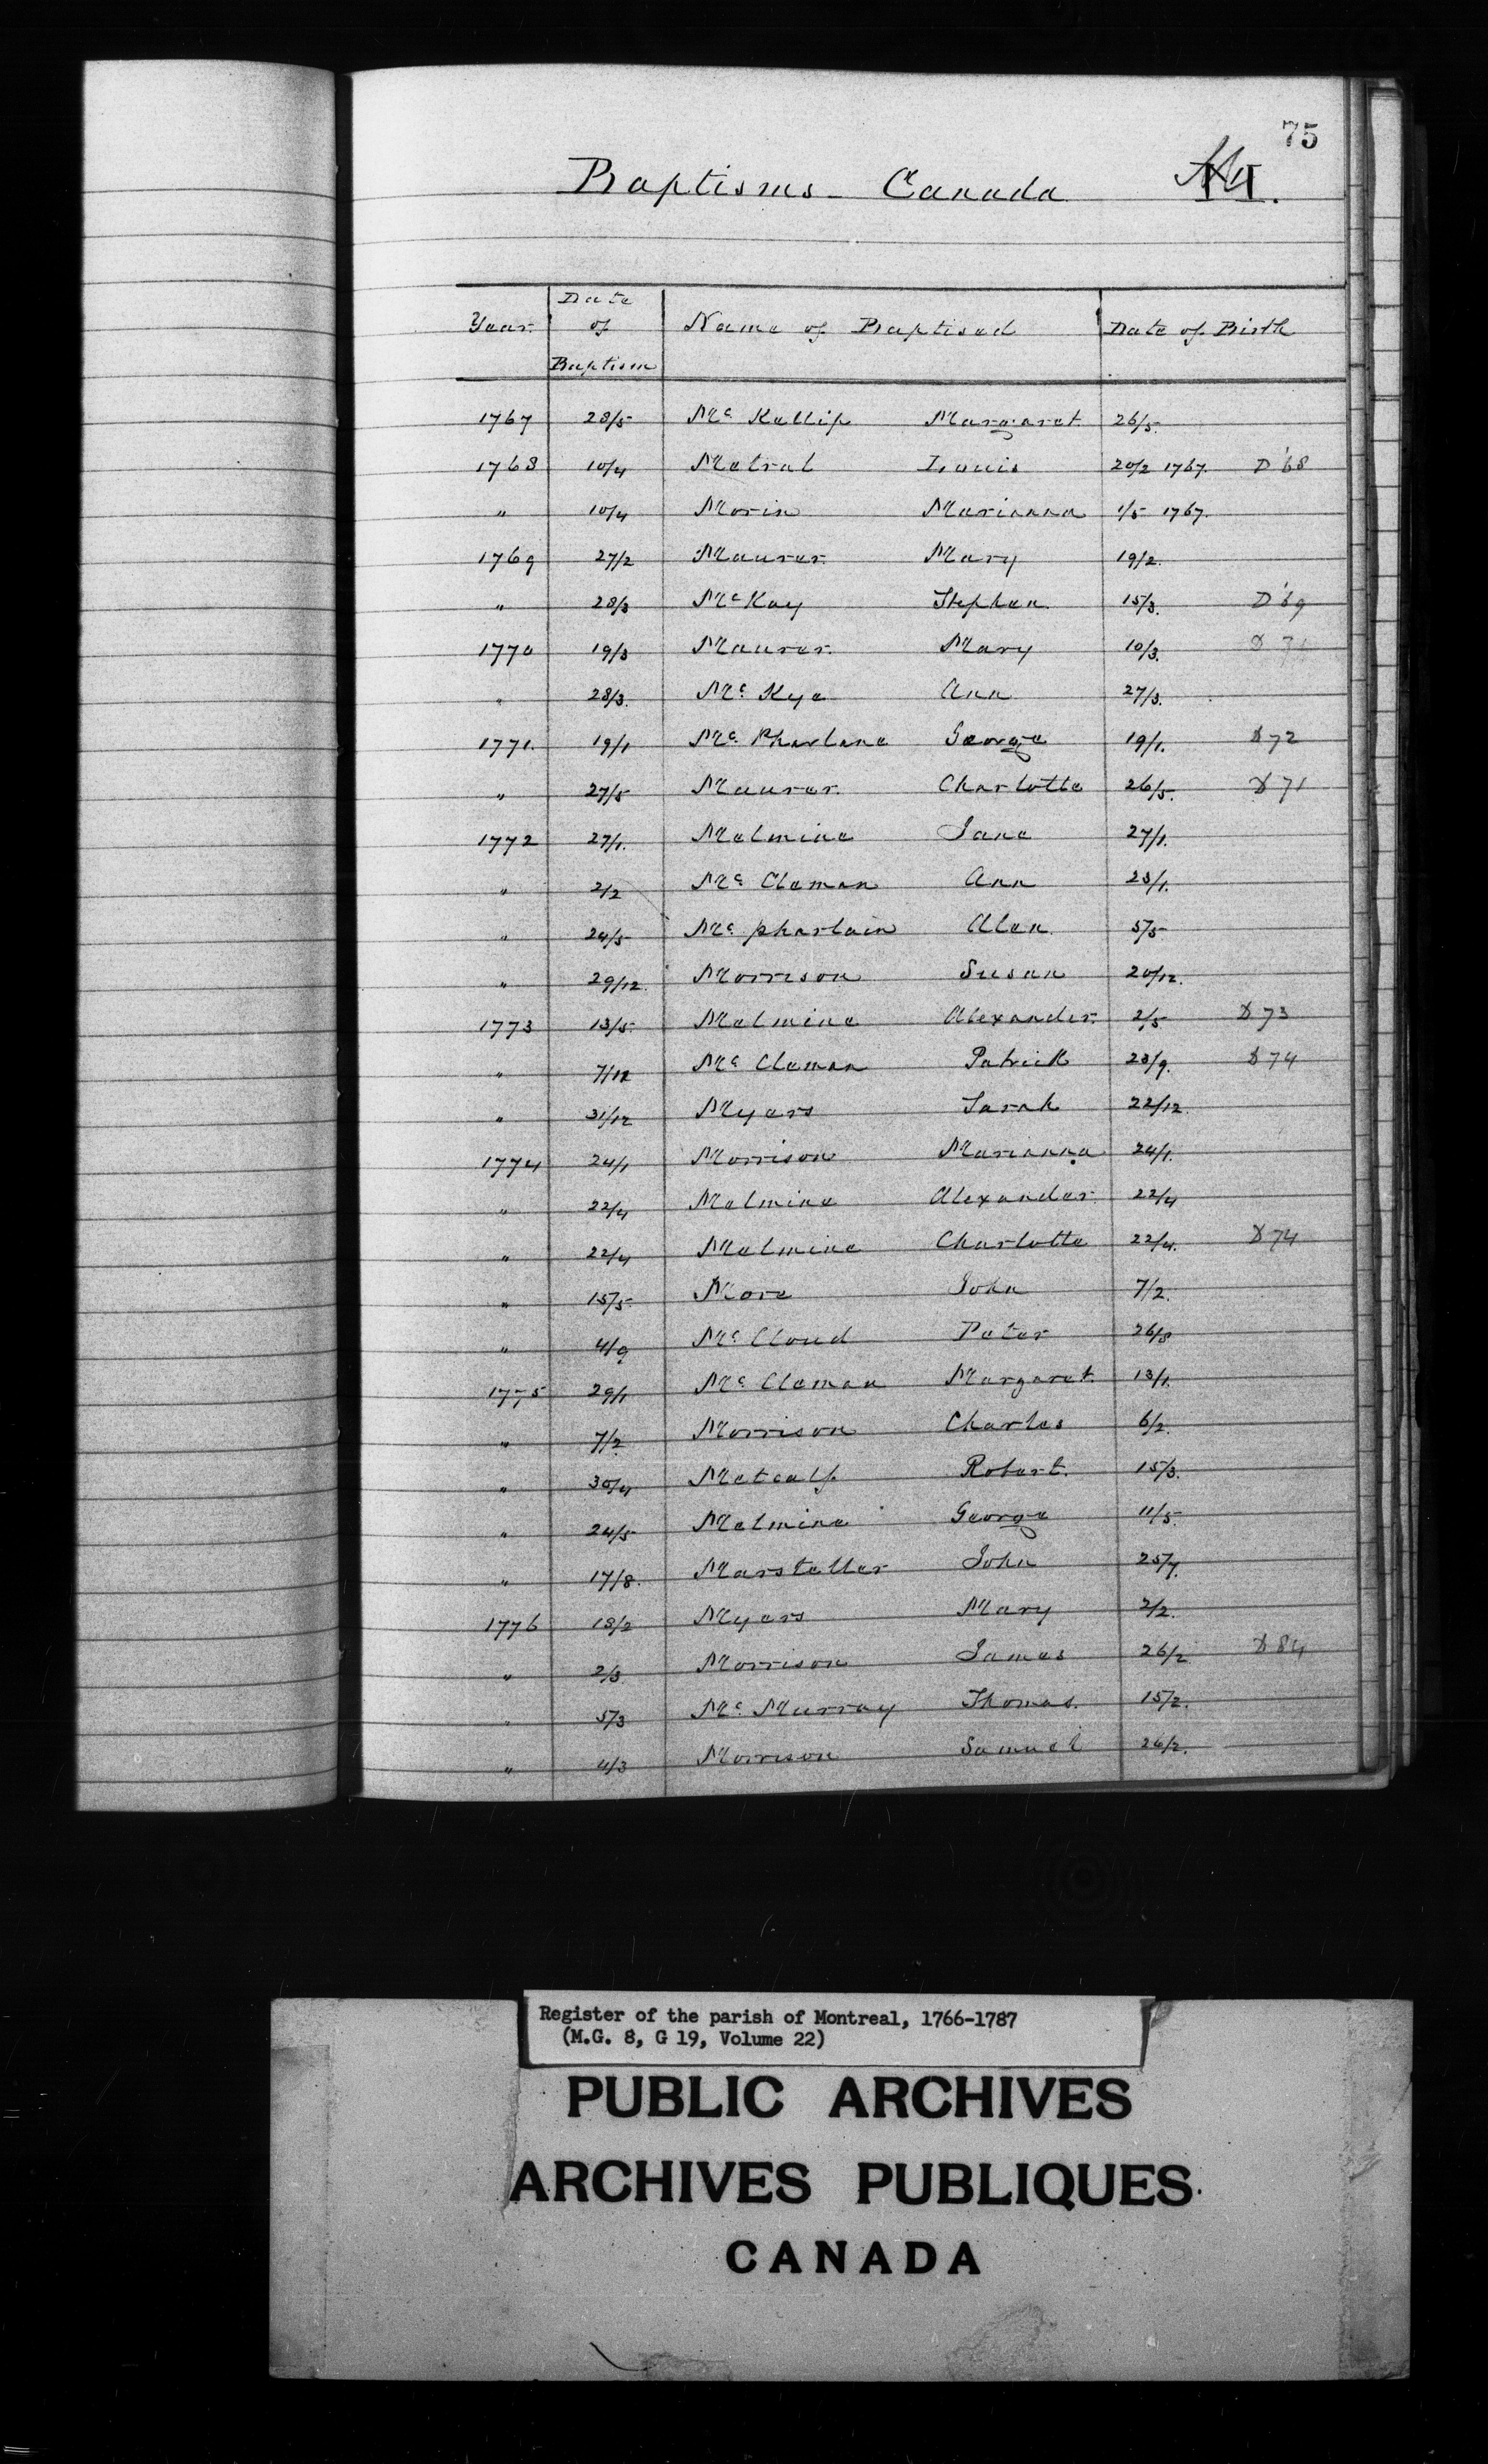 75
Baptisms - Canada M.
Year Date of Baptism Name of Baptised Date of Birth
1767 28/5 Mc Kellip Margaret 26/5.
1768 10/4 Metral Louis 20/2 1767. D'68
" 10/4 Morin Marianna 1/5 1767.
1769 27/2 Maurer. Mary 19/2.
" 28/3 McKay Stephen. 15/3. D'69
1770 19/3 Maurer. Mary 10/3. D 71
" 28/3. Mc Kye Ann 27/3.
1771. 19/1 Mc. Pharlane George 19/1. D 72
" 27/5 Maurer. Charlotte 26/5. D 71
1772 27/1. Melmine Jane 27/1.
" 2/2 Mc Cleman Ann 23/1.
" 24/5 Mc. pharlain Alen. 5/5
" 29/12. Morrison Susan 20/12.
1773 13/5. Melmine Alexander. 2/5 D 73
" 7/12 Mc Cleman Patrick 23/9. D 74
" 31/12 Myers Sarah 22/12.
1774 24/1 Morrison Marianna 24/1.
" 22/4 Melmine Alexander. 22/4
" 22/4 Melmine Charlotte 22/4. D 74
" 15/5 More John 7/2.
" 4/9 Mc Cloud Peter 26/8
1775 29/1 Mc Cleman Margaret. 13/1.
" 7/2 Morrison Charles 6/2.
" 30/4 Metcalf Robert. 15/3.
" 24/5 Melmine George 11/5.
" 17/8. Marsteller John 25/7.
1776 18/2 Myers Mary 2/2.
" 2/3 Morrison James 26/2 D 84
" 5/3 Mc. Murray Thomas. 15/2.
" 4/3 Morrison Samuel 26/2.
Register of the parish of Montreal, 1766-1787
(M.G. 8, G 19, Volume 22)
PUBLIC ARCHIVES
ARCHIVES PUBLIQUES
CANADA